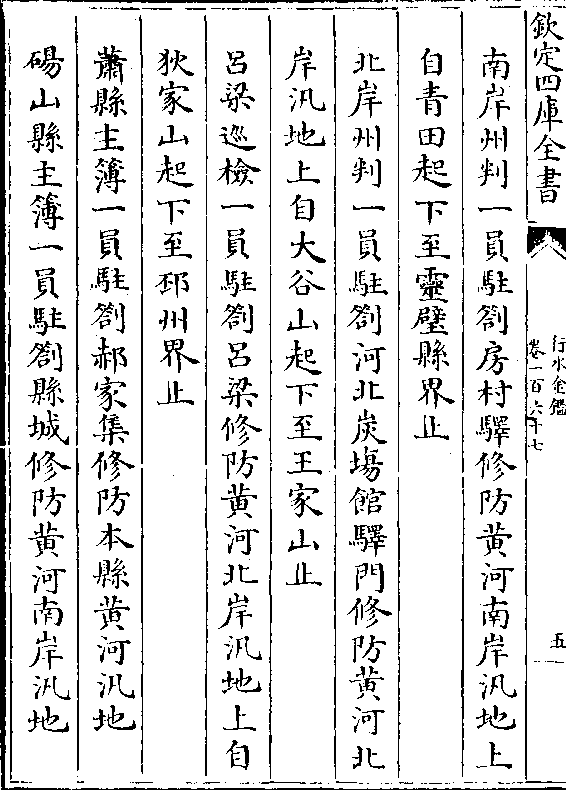 欽定四庫全書
行水金鑑
卷一百六十七
五
南岸州判一員駐劄房村驛修防黄河南岸汛地上
自青田起下至靈璧縣界止
北岸州判一員駐劄河北炭塲館驛門修防黄河北
岸汛地上自大谷山起下至王家山止
呂梁巡檢一員駐劄呂梁修防黄河北岸汛地上自
狄家山起下至邳州界止
蕭縣主簿一員駐劄郝家集修防本縣黄河汛地
碭山縣主簿一員駐劄縣城修防黄河南岸汛地